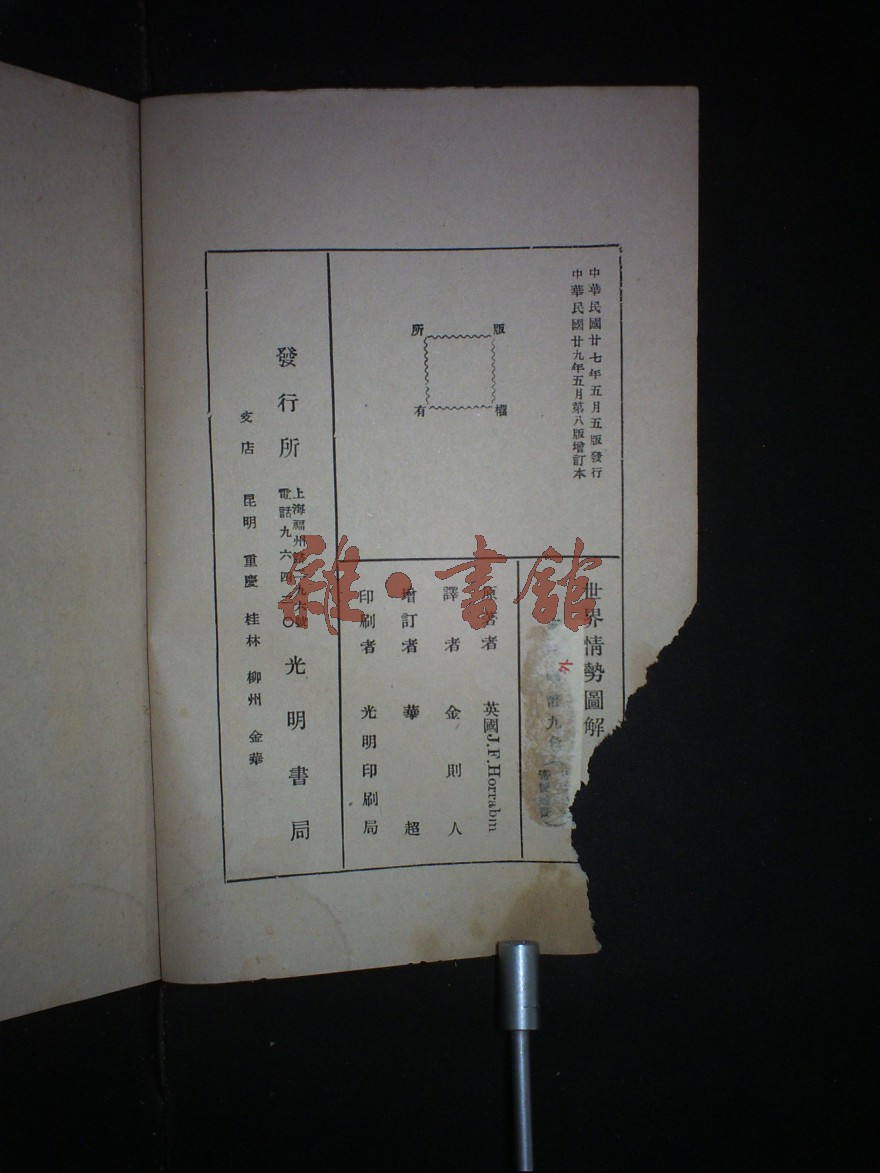 中華民國廿七年五月五版發行
中華民國廿九年五月第八版增訂本
版權所有
世界情勢圖解
外
九
原著者 英國J.F.Horrabin
譯者 金則人
增訂者 華超
印刷者 光明印刷局
發行所 光明書局
上海福州路 九六號
電話九六四 〇
支店 昆明 重慶 桂林 柳州 金華
雜·書館